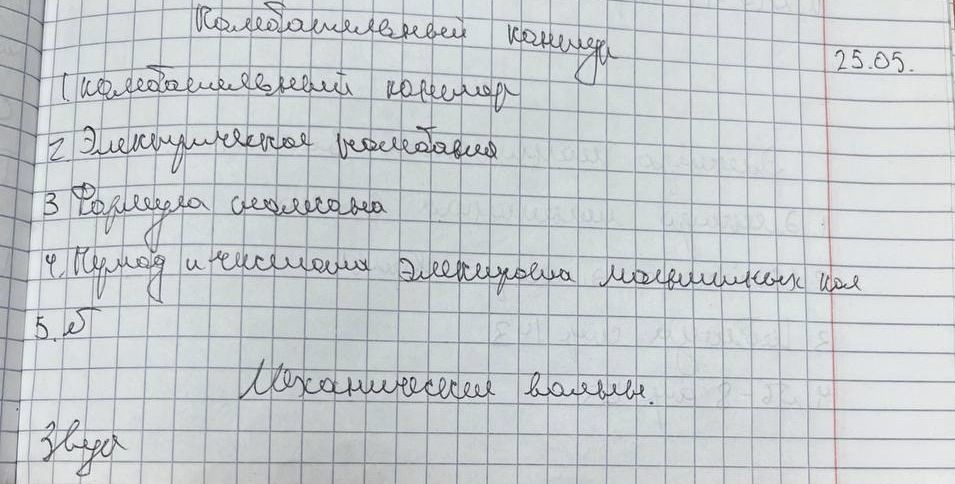 Колебательный контур
25.05.
1 колебательный контур
2. Электрическое колебания
3 Формула томсона
4. Кумод и частота Электрома магнитных кол
5. б
Механический волны.
Звук